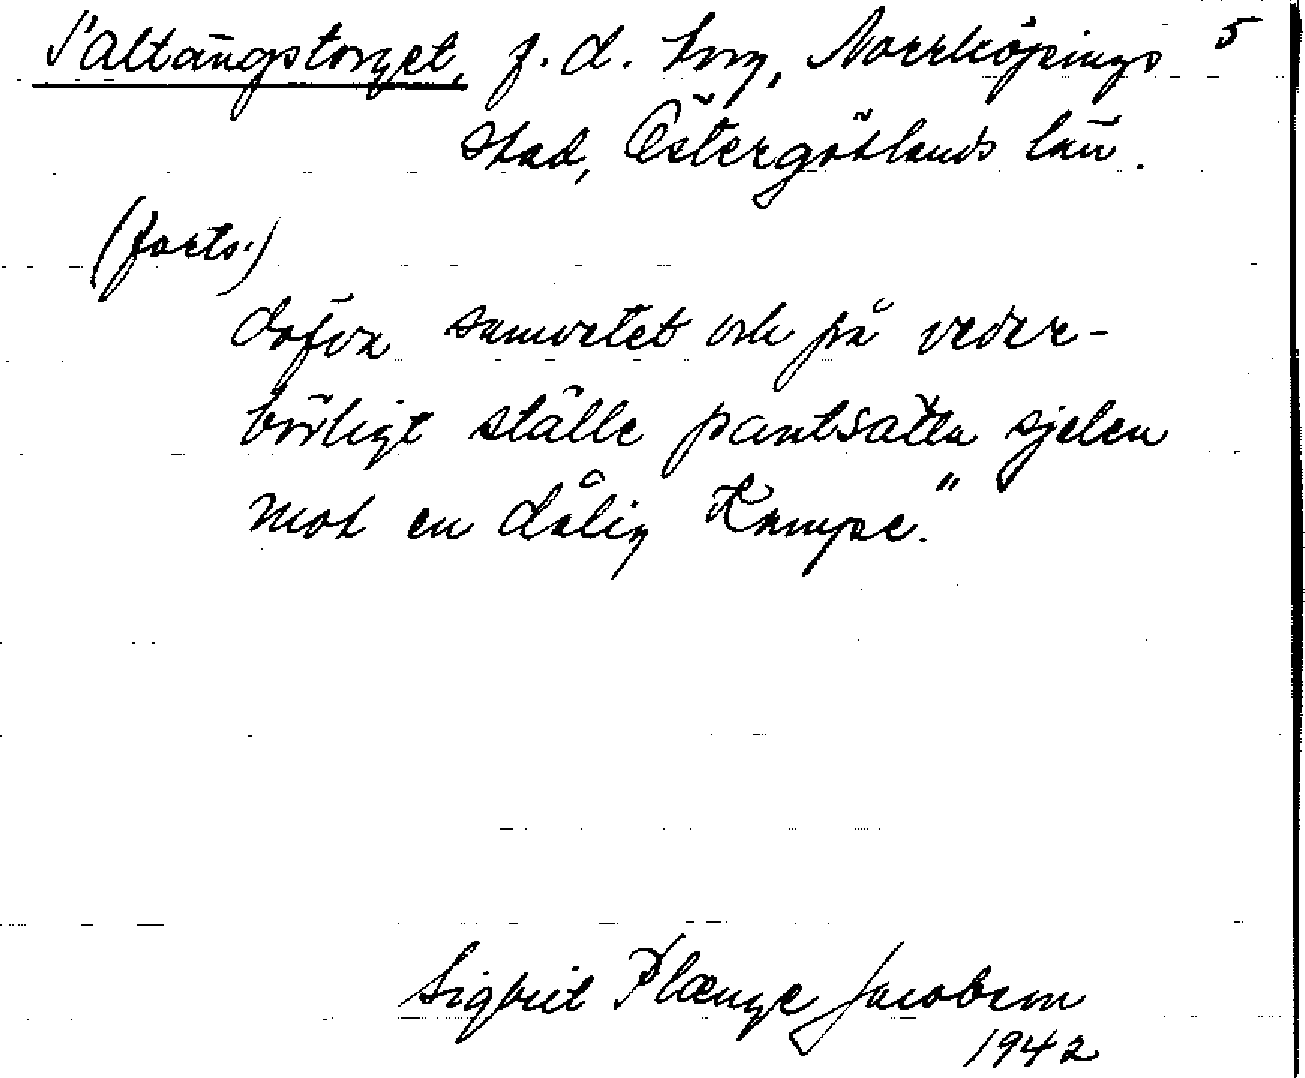 Saltängstorget, f. d. torg, Norrköpings 5
stad, Östergötlands län.
(forts.)
döfva samvetet och på veder-
börligt ställe pantsätta sjelen
mot en dålig Kampe."
Sigbrit Plænge Jacobson
1942